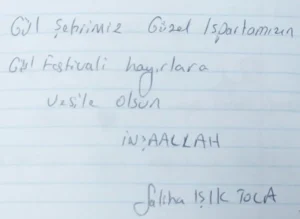 Gül Şehrimiz Güzel Ispartamızın
Gül Festivali hayırlara
vesile olsun
İNŞAALLAH
Saliha IŞIK TOLA